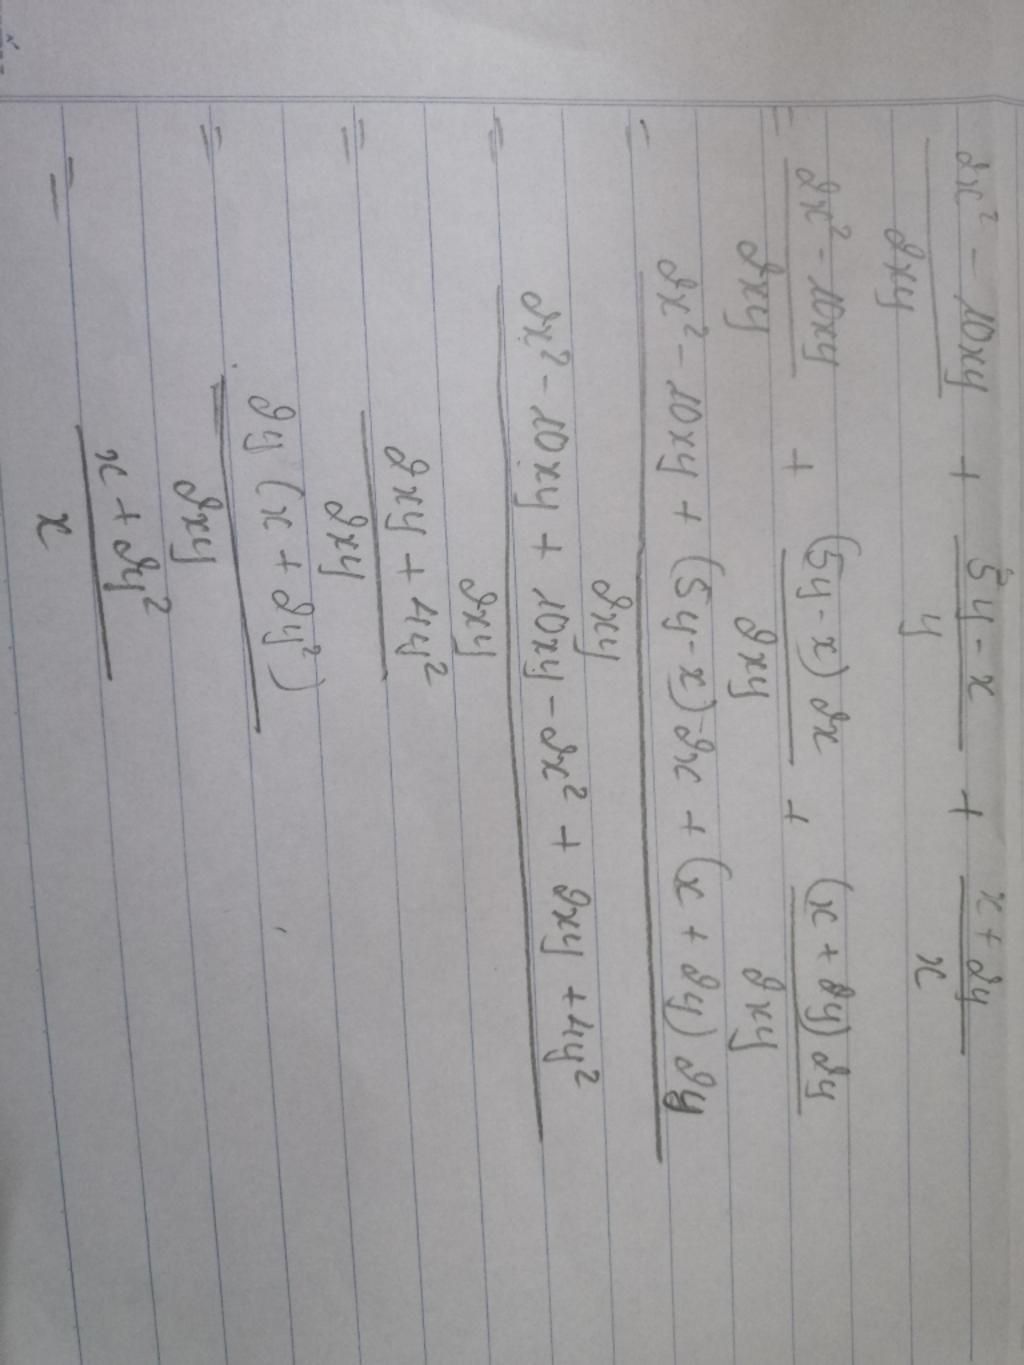 2x² - 10xy + 5y - x + x + 2y
2xy y x
= 2x² - 10xy + (5y - x) 2x + (x + 2y) 2y
2xy 2xy 2xy
= 2x² - 10xy + (5y - x) 2x + (x + 2y) 2y
2xy
= 2x² - 10xy + 10xy - 2x² + 2xy + 4y²
2xy
= 2xy + 4y²
2xy
= 2y (x + 2y²)
2xy
= x + 2y²
x